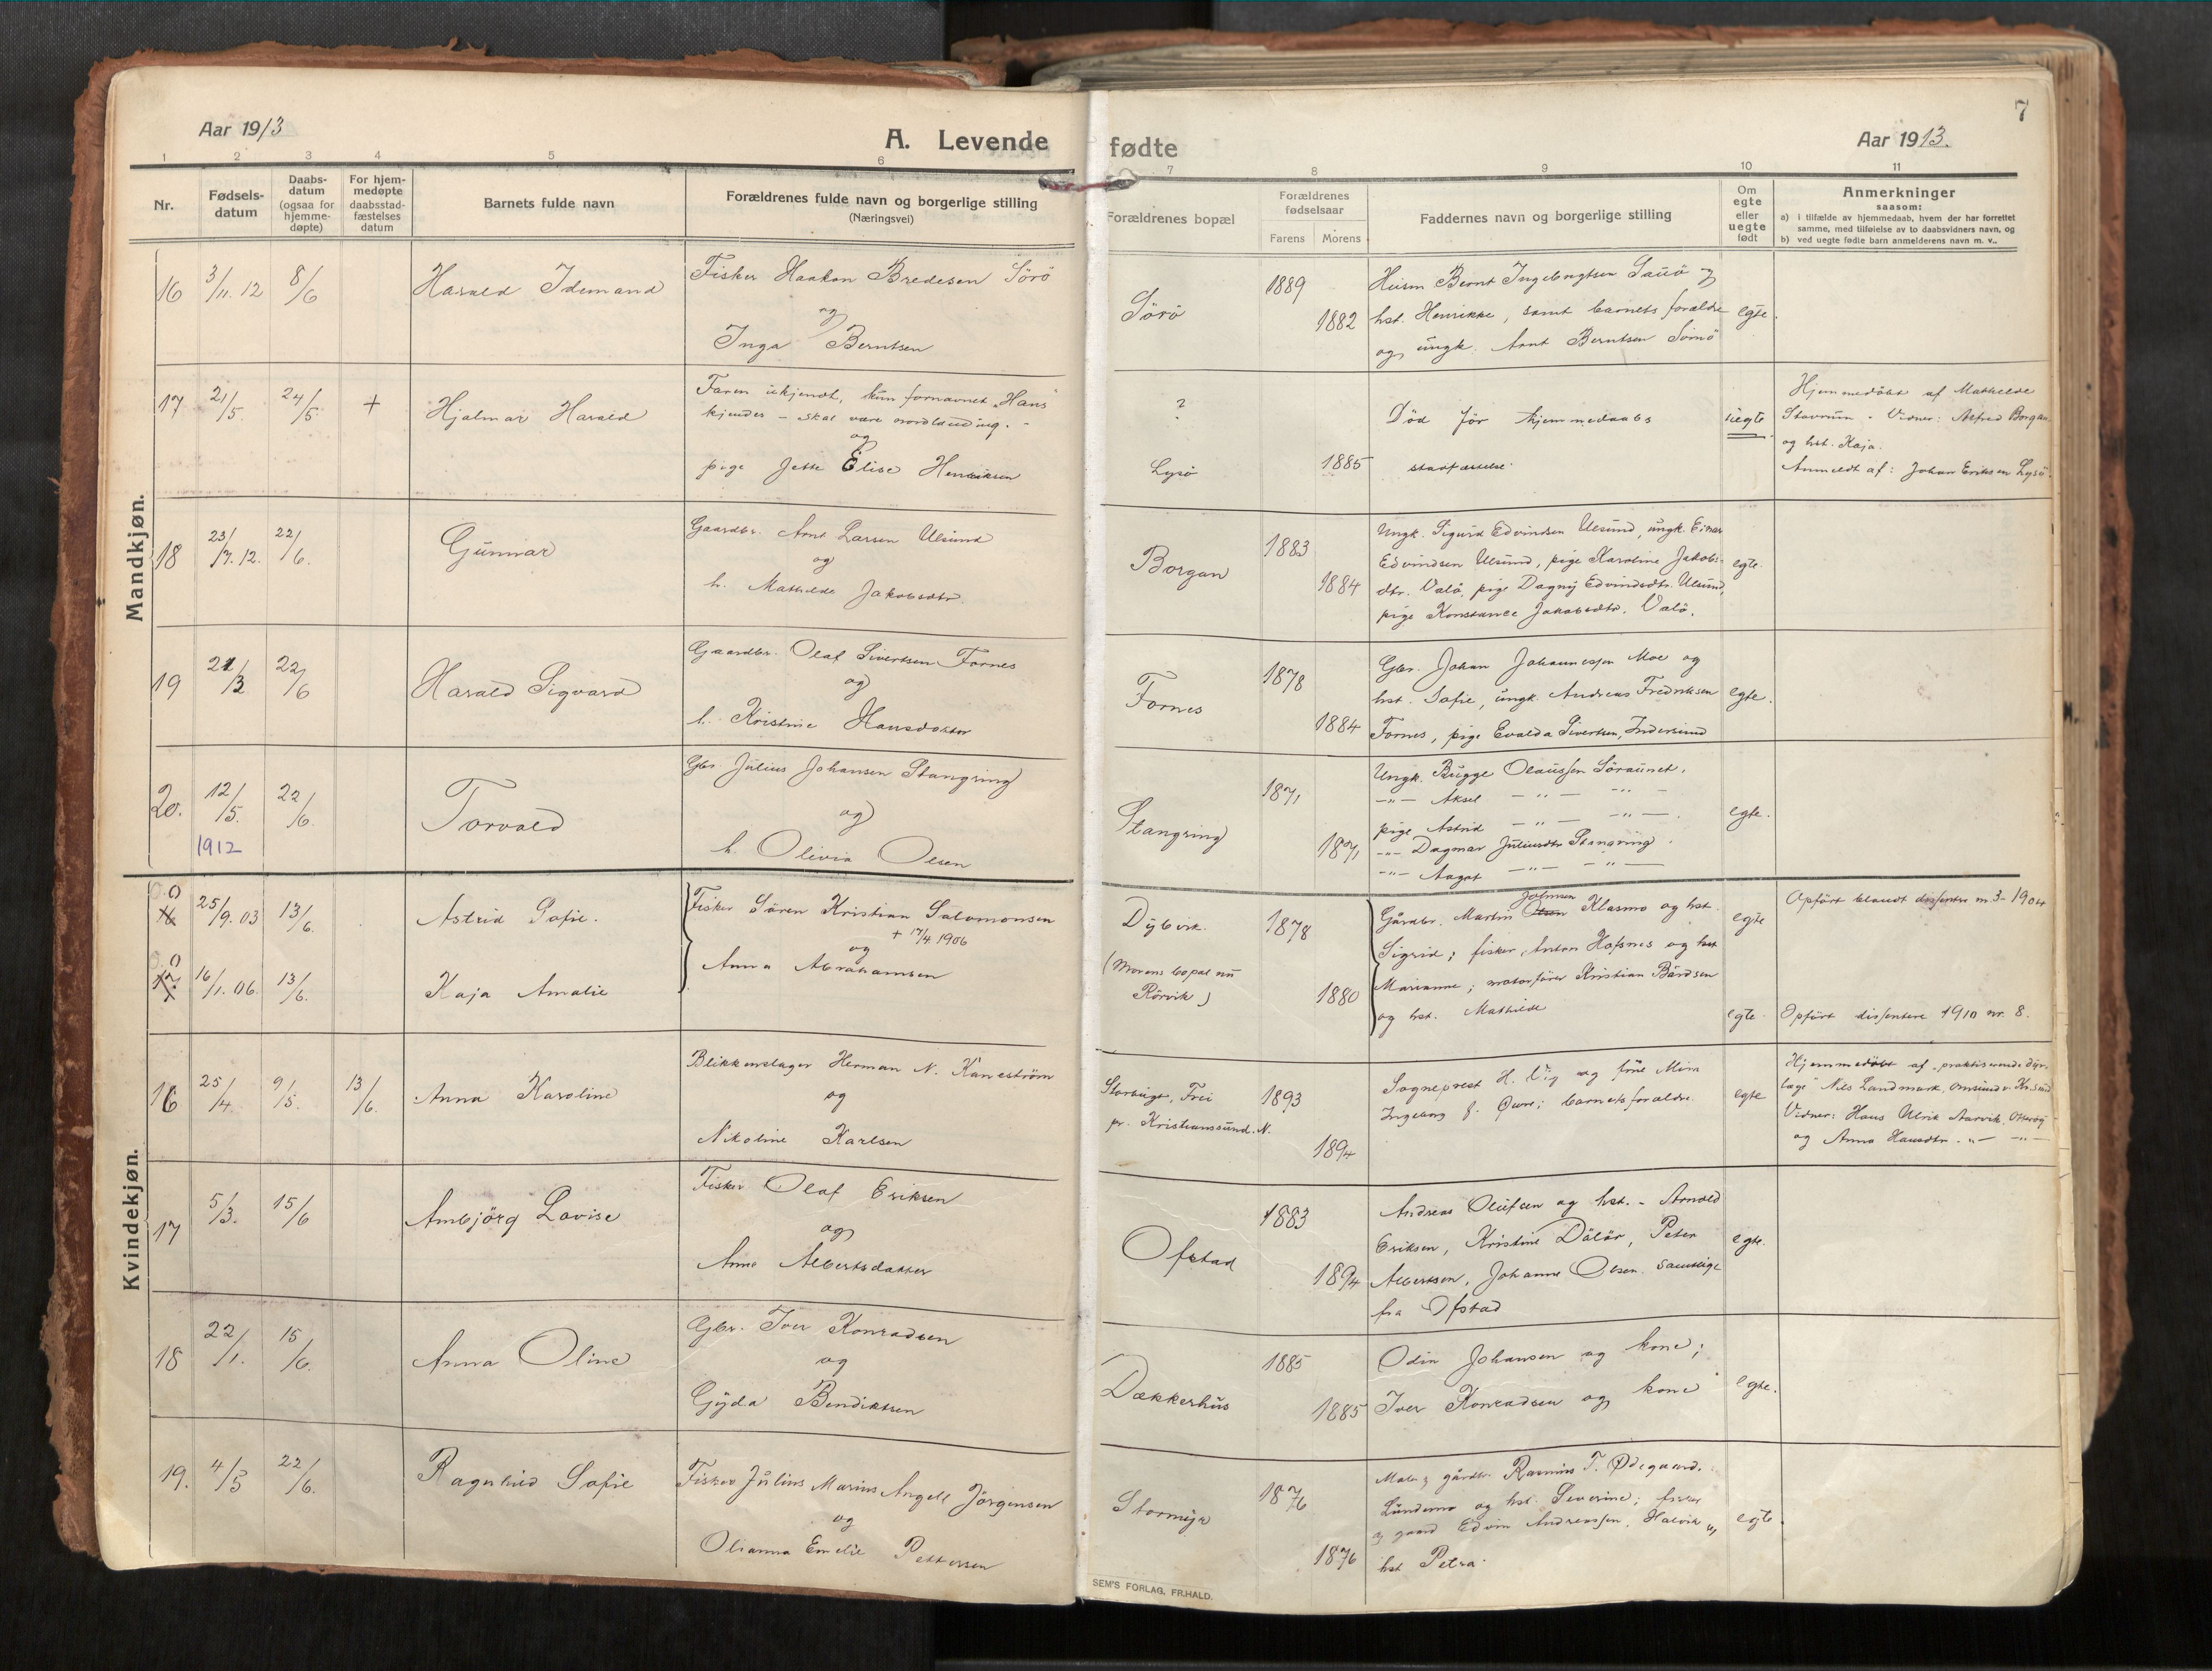 7
Aar 1913
A. Levende
fødte
Aar 1913.
1 2 3 4 5 6 7 8 9 10 11
Nr.
Fødsels-
datum
Daabs-
datum
(ogsaa for
hjemme-
døpte)
For hjem-
medøpte
daabsstad-
fæstelses
datum
Barnets fulde navn
Forældrenes fulde navn og borgerlige stilling
(Næringsvei)
Forældrenes bopæl
Forældrenes
fødselsaar
Farens Morens
Faddernes navn og borgerlige stilling
Om
egte
eller
uegte
født
Anmerkninger
saasom:
a) i tilfælde av hjemmedaab, hvem der har forrettet
samme, med tilføielse av to daabsvidners navn, og
b) ved uegte fødte barn anmelderens navn m. v..
Mandkjøn.
16 3/11. 12 8/6
Harald Idemand
Fisker Haakon Bredesen Sörö
og
Inga Berntsen
Sörö
1889
1882
Husm Bernt Ingebrigtsen Sauö og
hst. Henrikke, samt barnets forældre
og ungk. Arnt Berntsen Sörö
egte.
17 21/5. 24/5 +
Hjalmar Harald
Faren ukjendt, kun fornavnet "Hans"
kjendes - skal være nordlænding. -
og
pige Jette Elise Henriksen
?
Lysö
1885
Död för hjemmedaabs
stadfæstelse.
uegte
Hjemmedöbt af Mathilde
Stavrum. Vidner: Alfred Borgan
og hst. Kaja.
Anmeldt af: Johan Eriksen Lysö.
18 23/7. 12. 22/6.
Gunnar
Gaardbr. Arne Larsen Ulsund
og
h. Mathilde Jakobsdtr.
Borgan
1883
1884
Ungk. Sigurd Edvindsen Ulsund, ungk. Einar
Edvindsen Ulsund, pige Karoline Jakobs-
dtr. Valö, pige Dagny Edvindsdtr. Ulsund,
pige Konstance Jakobsdtr. Valö.
egte.
19 21/3 22/6
Harald Sigvard
Gaardbr. Olaf Sivertsen Fornes
og
h. Kristine Hansdatter
Fornes
1878
1884
Gbr. Johan Johannessen Moe og
hst. Sofie, ungk. Andreas Fredriksen
Fornes, pige Evalda Sivertsen, Indersund
egte.
20. 12/5. 22/6.
1912
Torvald
Gbr. Julius Johansen Stangring
og
h. Olivia Olsen
Stangring
1871
1871
Ungk. Bugge Olaussen Söraunet.
-"- Aksel -"- -"-
pige Astrid -"- -"-
-"- Dagmar Juliusdtr Stangring.
-"- Aagot -"- -"-
egte.
Kvindekjøn.
0.0
16 25/9. 03 13/6.
Astrid Sofie.
Fisker Sören Kristian Salomonsen
+ 17/4 1906
og
Anna Abrahamsen
Dybvik.
(Morens bopæl nu
Rörvik)
1878
1880
Johnsen
Gårdbr. Martin Olsen Klasmo og hst.
Sigrid; fisker Anton Hofsnes og hst
Marianne; motorförer Kristian Bårdsen
og hst. Mathilde
egte
Opfört blandt dissentre nr. 3 - 1904
0.0
17. 16/1. 06. 13/6.
Kaja Amalie
egte.
Opfört dissentere 1910 nr. 8.
16 25/4. 9/5. 13/6.
Anna Karoline
Blikkenslager Herman N. Kaneström
og
Nikoline Karlsen
Storbugt, Frei
pr. Kristianssund. N.
1893
1894
Sogneprest H. Vig og frue Mina
Ingeborg f. Øwre; barnets forældre.
egte
Hjemmedöbt af "praktiserende dyr-
læge" Nils Landmark, Omsund v. Kr.sund
Vidner: Hans Ulrik Aarvik, Otteröy
og Anna Hansdtr. -"- -"-
17 5/3. 15/6
Ambjörg Lovise
Fisker Olaf Eriksen
og
Anna Albertsdatter
Ofstad
1883
1894
Andreas Olufsen og hst. - Arnold
Eriksen, Kristine Dölör, Peter
Albertsen, Johanne Olsen. samtlige
fra Ofstad
egte.
18 22/1. 15/6.
Anna Oline
Gbr. Iver Konradsen
og
Gyda Bendiktsen
Dækkerhus
1885
1885
Odin Johansen og kone;
Iver Konradsen og kone
egte.
19. 4/5 22/6.
Ragnhild Sofie
Fisker Julius Marius Angell Jörgensen
og
Olianna Emelie Pettersen
Stormyr
1876
1876
Maler & gårdbr. Rasmus T. Ødegaard.
Lundemo og hst. Severine; fisker
& gaard Edvin Andreassen, Halvik og
hst Petra.
egte.
SEM'S FORLAG. FR.HALD.